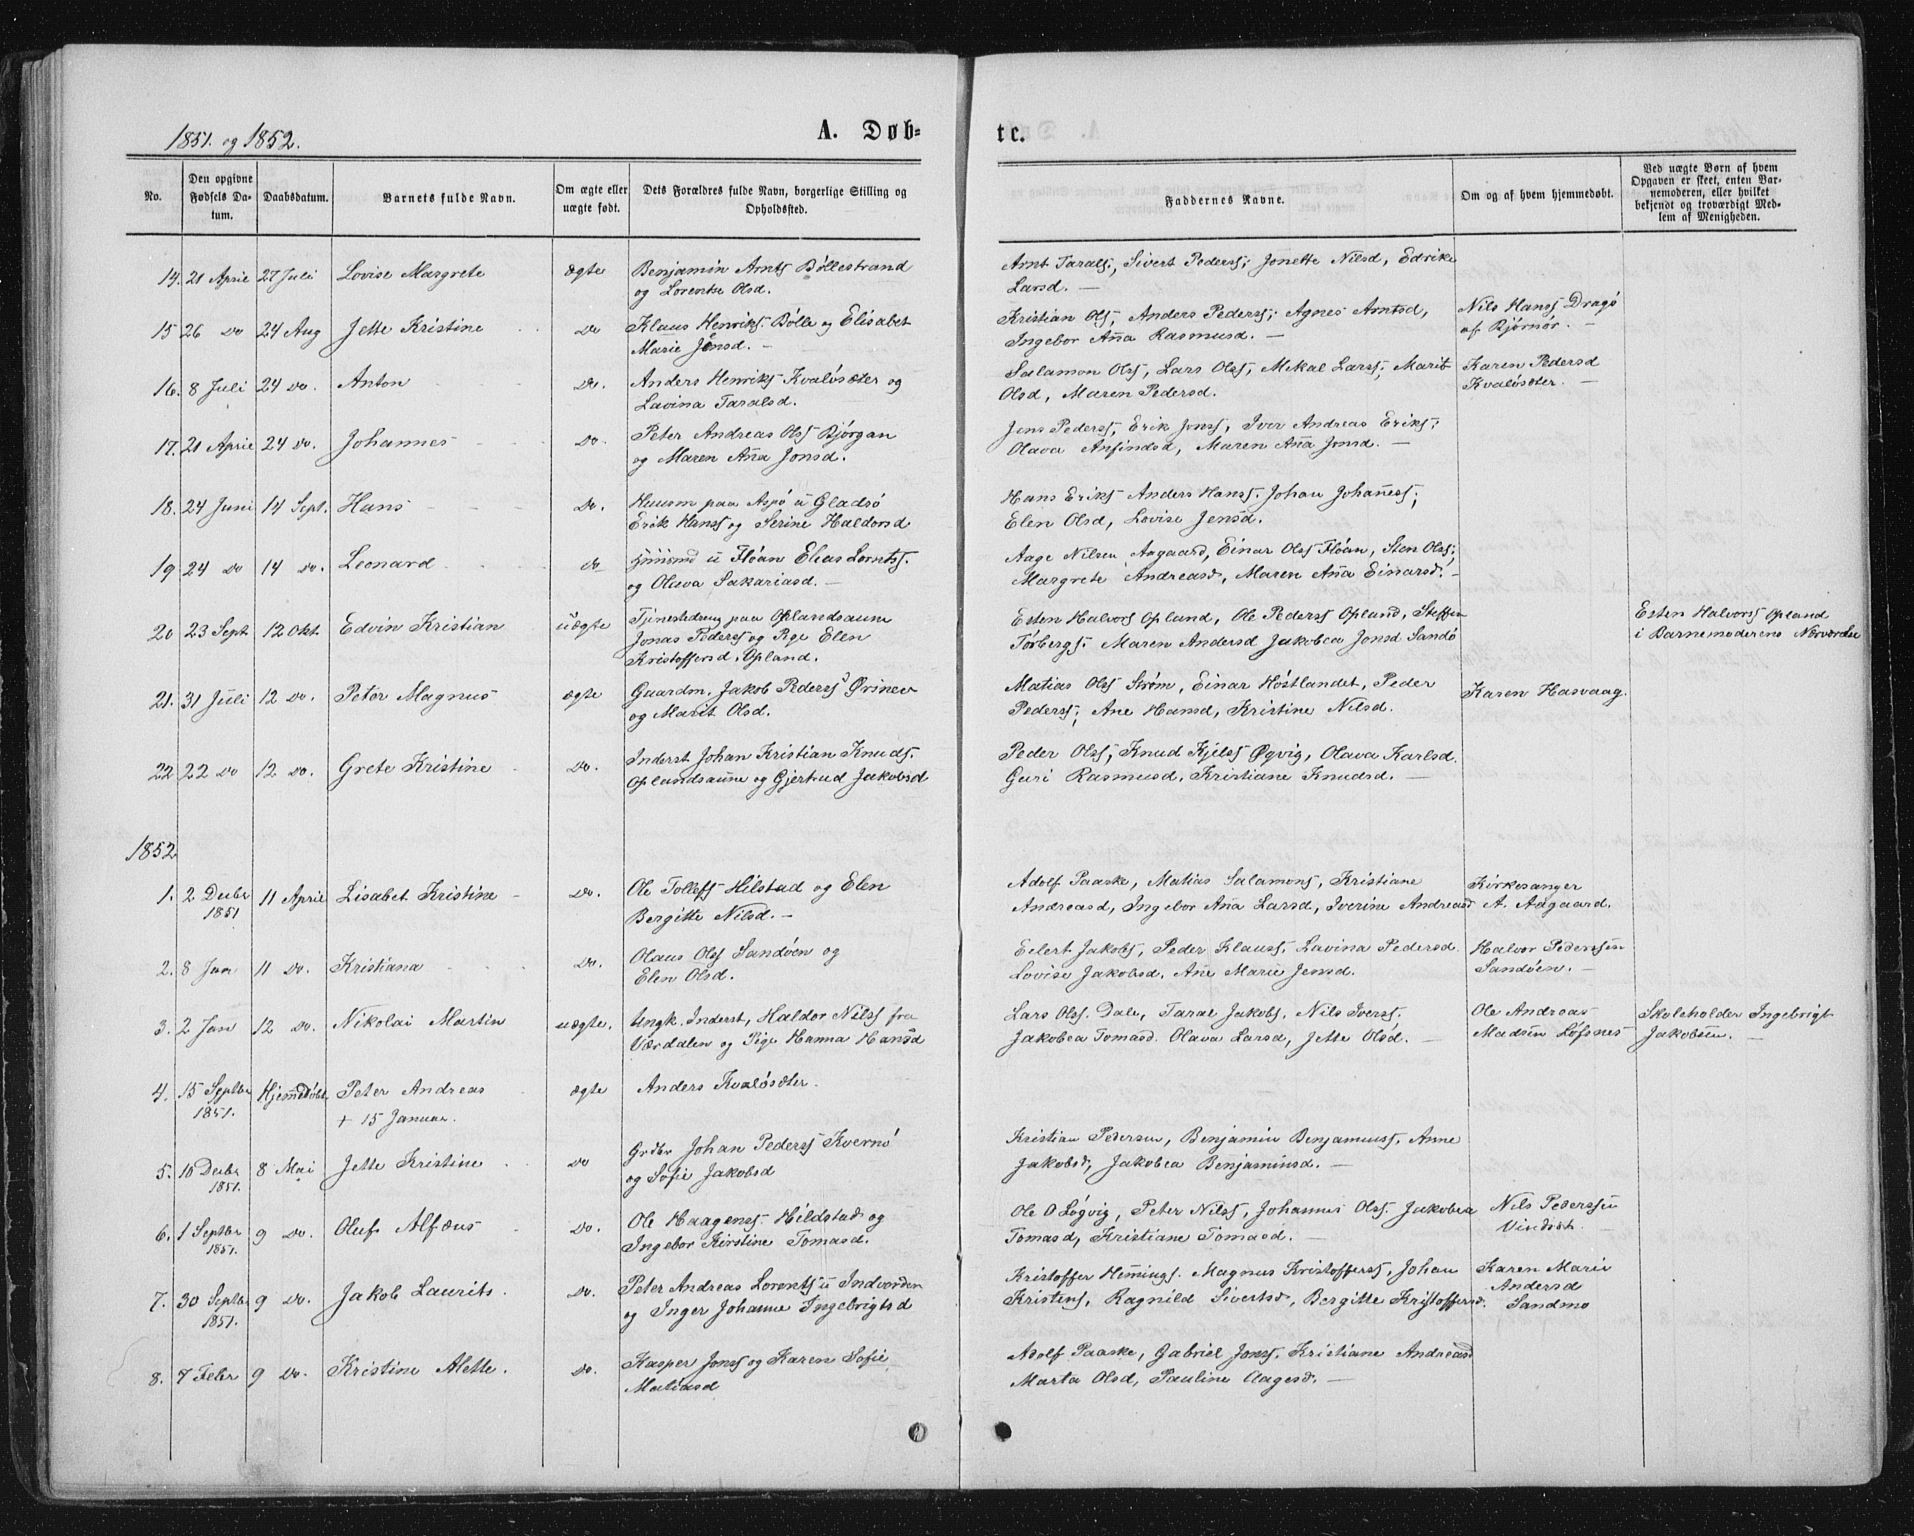 1851. og 1852.
A. Døb-
te.
No.
Den opgivne Fødsels Da-tum.
Daabsdatum.
Barnets fulde Navn.
Om ægte eller uægte født.
Dets Forældres fulde Navn, borgerlige Stilling og Opholdssted.
Faddernes Navne.
Om og af hvem hjemmedøbt.
Ved uægte Børn af hvem Opgaven er skeet, enten Bar-nemoderen, eller hvilket bekjendt og troværdigt Med-lem af Menigheden.
14. 21 April 27 Juli Lovise Margrete ægte Benjamin Arnts Bøllestrand
og Lorentse Olsd.
Arnt Tarals, Sivert Peders; Jonette Nilsd, Edrike
Larsd. —
15 26 do 24 Aug Jette Kristine do Klaus Henriks. Bølle og Elisabet
Marie Jensd. —
Kristian Ols, Anders Peders; Agnes Arntsd,
Ingebor Aña Rasmusd. —
Nils Hanss Dragø
af Bjørnør. —
16. 8 Juli 24 do. Anton do. Anders Henriks Kvaløsæter og
Lavina Taralsd.
Salamon Ols, Lars Ols, Mekal Larss; Marit
Olsd, Maren Pedersd.
Karen Pedersd
Kvaløsæter. —
17. 21 April 24 do. Johannes do. Peter Andreas Ols Bjørgan
og Maren Aña Jonsd.
Jens Peders, Erik Jons, Iver Andreas Eriks;
Olava Anfindsd, Maren Aña Jonsd. —
18. 24 Juni 14 Sept. Hans do. Huusm paa Aspø u Gladsø
Erik Hanss og Serine Haldorsd
Hans Eriks Anders Hanss. Johan Johañess;
Elen Olsd, Lovise Jensd.
19 24 do 14 do. Leonard do u Fløan Elias Lorntss.
og Olava Sakariasd. —
Aage Nilsen Aagaard, Einar Ols Fløan, Sten Ols;
Margrete Andreasd, Maren Aña Einarsd. —
20 23 Sept 12 Okt. Edvin Kristian uægte Tjenestedreng paa Oplandsaune
Jonas Peders og Pige Elen
Kristoffersd. Opland.
Esten Halvors Opland, Ole Peders Opland, Steffen
Torbergs. Maren Andersd Jakobea Jonsd Sandø
Esten Halvors Opland
i Barnemoderens Nærværelse
21. 31 Juli 12 do. Peter Magnus ægte Gaardm. Jakob Peders Ørinev
og Marit Olsd.
Matias Ols Strøm, Einar Høstlandet, Peder
Peders; Ane Hansd, Kristine Nilsd.
Karen Hasvaag.
22 22 do 12 do. Grete Kristine do. Inderst Johan Kristian Knuds.
Oplandsaune og Gjertrud Jakobsd
Peder Ols; Knud Kjels Øqvig, Olava Karlsd.
Guri Rasmusd. Kristiane Knudsd. —
1852.
1. 2 Decbr 11 April Lisabet Kristine do. Ole Tollefs Hilstad og Elen
1851
Bergitte Nilsd. —
Adolf Paaske, Matias Salamons, Kristiane
Andreasd, Ingebor Aña Larsd, Iverine Andreasd
Kirkesanger
A. Aagaard.
2. 8 Jan 11 do. Kristiana do. Olaus Ols Sandøen og
Elen Olsd.
Eilert Jakobs, Peder Klauss, Lavina Pedersd.
Lovise Jakobsd, Ane Marie Jensd.
Halvor Pederssen
Sandøen. —
3. 2 Jan 12 do. Nikolai Martin uægte. Ungk. Inderst, Haldor Nils fra
Værdalen og Pige Hanna Hansd
Lars Ols. Dale, Taral Jakobs, Nils Iverss.
Jakobea Tomasd. Olava Larsd, Jette Olsd. —
Ole Andreas
Madsen Løfsnes
Skoleholder Ingebrigt
Jakobsen. —
4. 15 Septbr Hjemmedøbt Peter Andreas ægte Anders Kvaløsæter.
1851.
+ 15 Januar.
5. 10 Decbr 8 Mai Jette Kristine do Grdbr Johan Peders Kvernø
1851.
og Sofie Jakobsd
Kristian Pedersen, Benjamin Benjaminss, Anne
Jakobsd, Jakobea Benjaminsd. —
6. 1 Septbr 9 do. Oluf Alfæus do. Ole Haagenss. Hildstad og
1851.
Ingebor Kirstine Tomasd.
Ole O Løgvig, Peter Nils, Johannes Ols. Jakobea
Tomasd, Kristiane Tomasd. —
Nils Pederssen
7. 30 Septbr 9 do. Jakob Laurits. do. Peter Andreas Lorents u Indvorden
1851.
og Inger Johanne Ingebrigtsd
Kristoffer Hemings. Magnus Kristofferss, Johan
Kristens, Ragnild Sivertsd, Bergitte Kristoffersd.
Karen Marie
Andersd
Sandmo
8. 7 Febr 9 do. Kristine Alette. do. Kasper Jonss og Karen Sofie
Matiasd
Adolf Paaske, Gabriel Jonss, Kristiane Andreasd
Marta Olsd, Pauline Aagesd. —